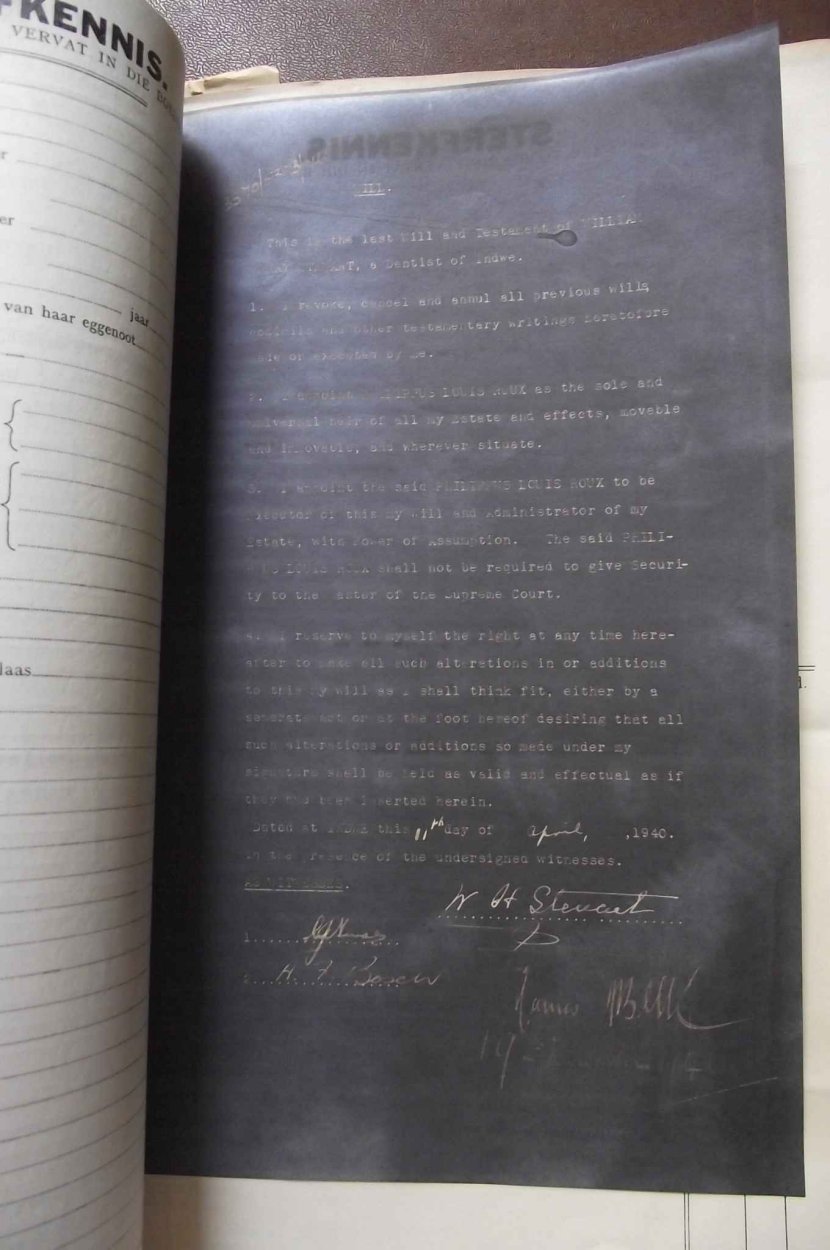 FKENNIS.
VERVAT IN DIE
er
van haar eggenoot
jaar
laas
STERFKENNIS.
WILL.
This is the last Will and Testament of WILLIAM
a Dentist of Indwe.
1. I revoke, cancel and annul all previous wills,
codicils and other testamentary writings heretofore
made or executed by me.
2. I appoint PHILIPPUS LOUIS ROUX as the sole and
universal heir of all my Estate and effects, movable
and immovable, and wherever situate.
3. I appoint the said PHILIPPUS LOUIS ROUX to be
Executor of this my Will and Administrator of my
Estate, with Power of Assumption. The said PHILI-
PPUS LOUIS ROUX shall not be required to give Securi-
ty to the Master of the Supreme Court.
4. I reserve to myself the right at any time here-
after to make all such alterations in or additions
to this my will as I shall think fit, either by a
separate act or at the foot hereof desiring that all
such alterations or additions so made under my
signature shall be held as valid and effectual as if
they had been inserted herein.
Dated at INDWE this 11th day of April, ,1940.
In the presence of the undersigned witnesses.
AS WITNESSES.
W H Stewart
1.
2. H. F.
James